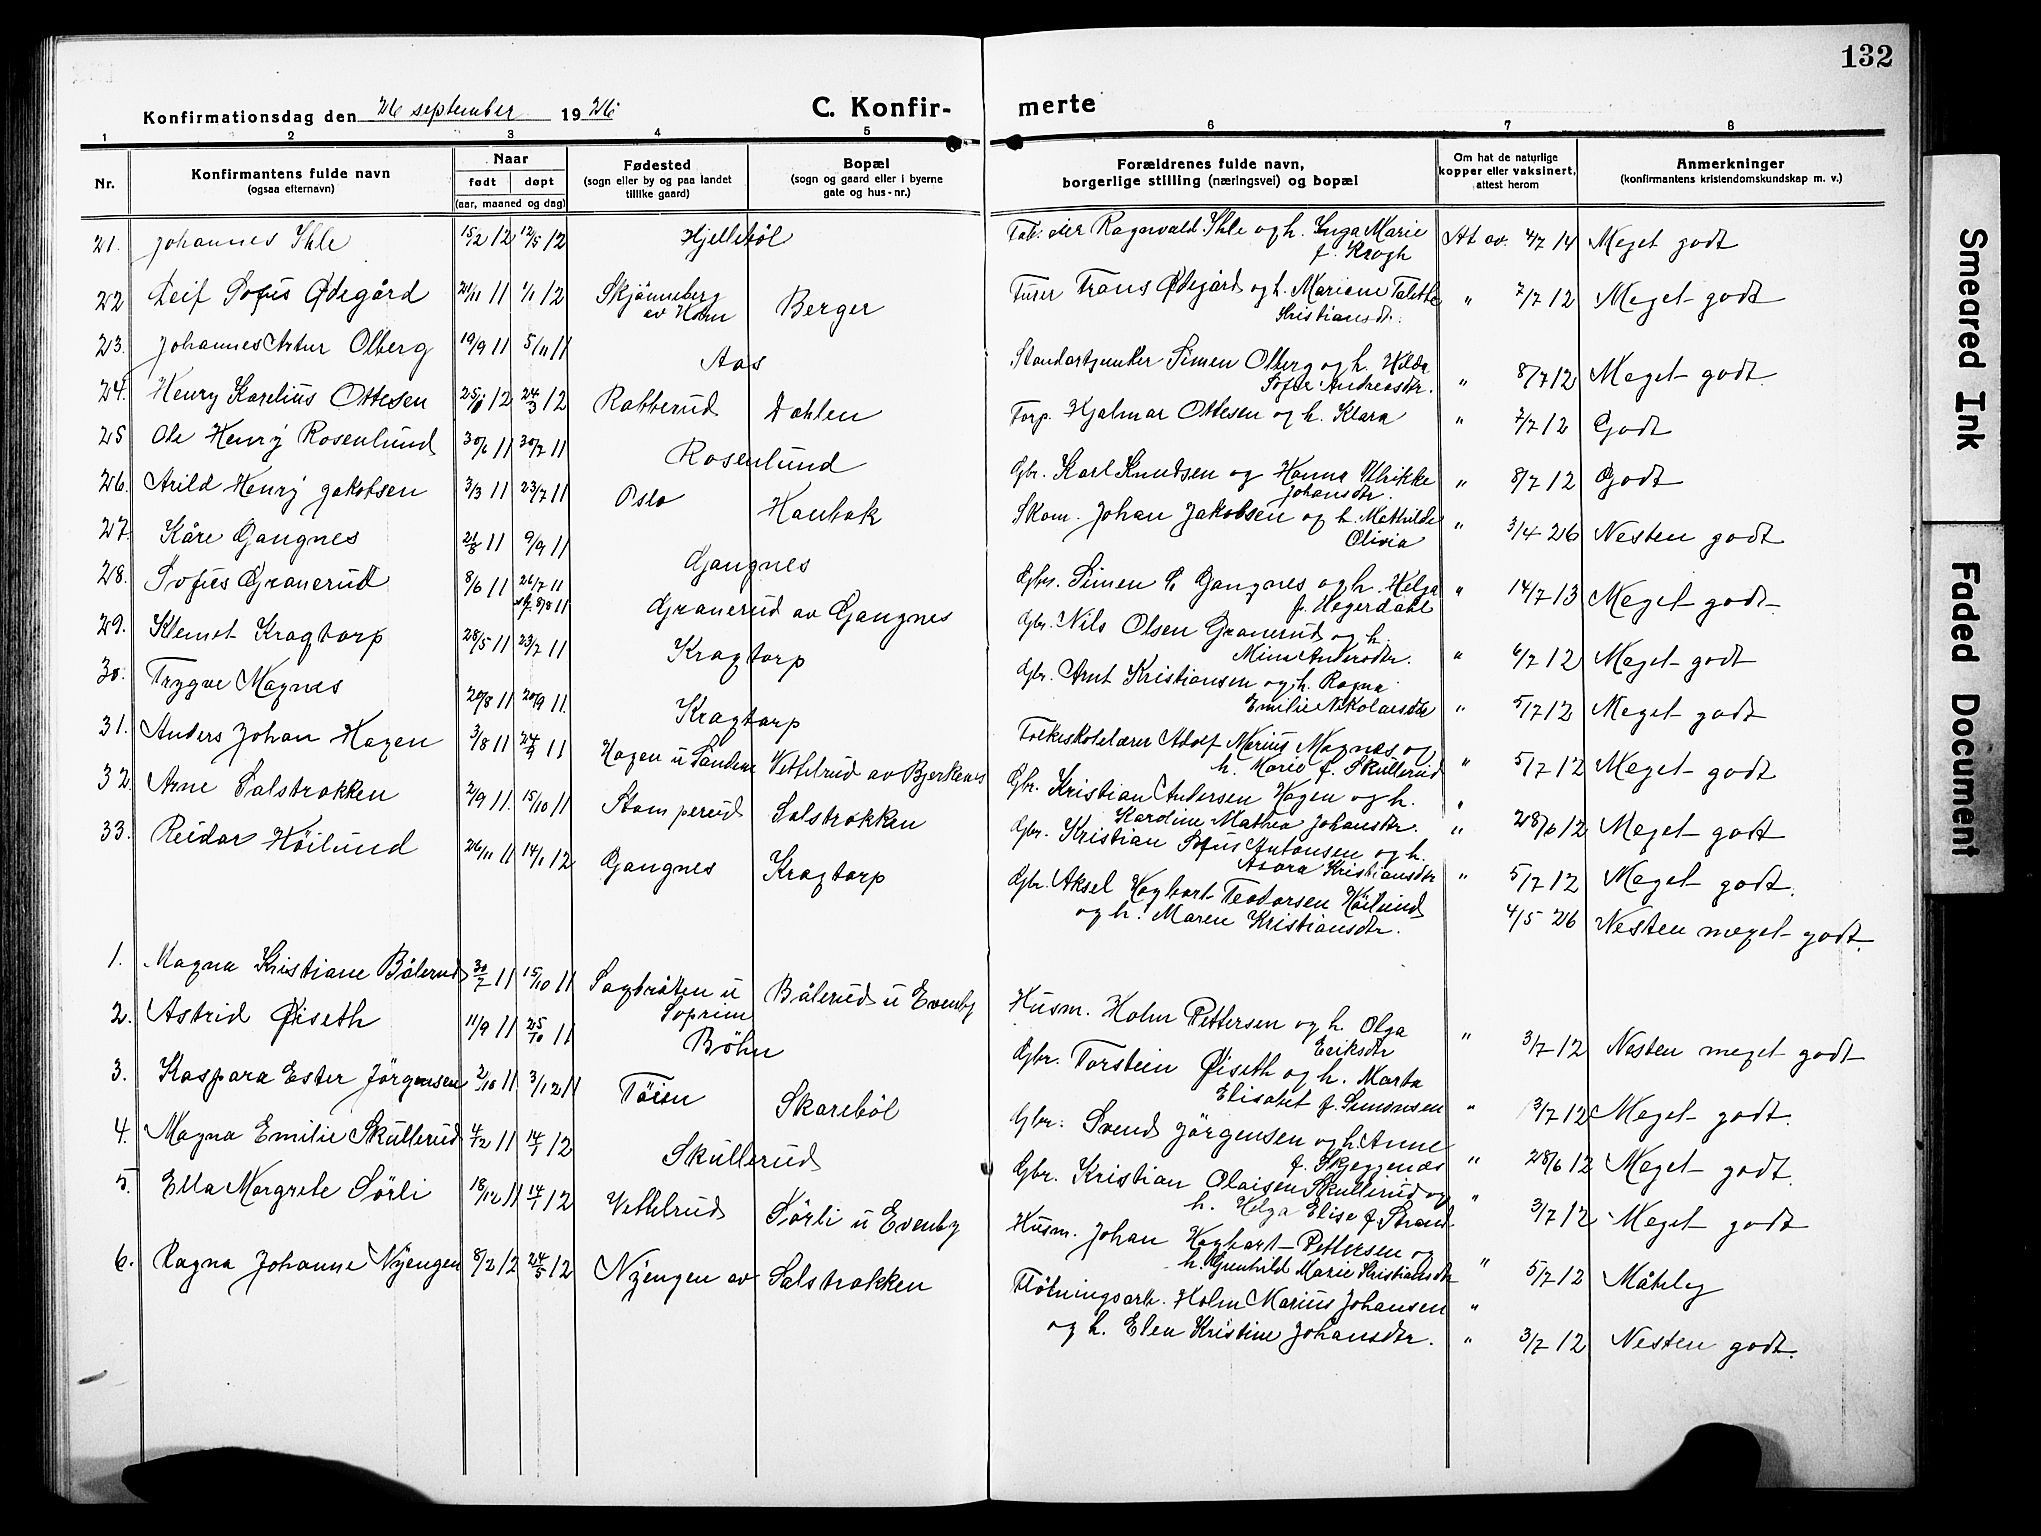 132
Konfirmationsdag den 26 september 1926
C. Konfir- merte
1 2 3 4 5 6 7 8
Nr.
Konfirmantens fulde navn
(ogsaa efternavn)
Naar
født døpt
(aar, maaned og dag)
Fødested
(sogn eller by og paa landet
tillike gaard)
Bopæl
(sogn og gaard eller i byerne
gate og hus-nr.)
Forældrenes fulde navn,
borgerlige stilling (næringsvei) og bopæl
Om hat de naturlige
kopper eller vaksinert,
attest herom
Anmerkninger
(konfirmantens kristendomskundskap m. v.)
21. Johannes Ihle 15/2 12 12/5 12 Hjellebøl Ragnvald Ihle og h. Inga Marie
f. Krogh At av. 4/7 14 Meget godt
22 Leif Sofus Ødegård 21/11 11 1/1 12 Skjønneberg
av Horn Berger Frans Ødegård og h. Mariene Talette
Kristiansdt. " 7/7 12 Meget godt
23. Johannes Artur Olberg 19/9 11 5/11 11 Aas Simen Olberg og h. Hilda
Sofie Andreasdtr. " 8/7 12 Meget godt
24. Henry Karelius Ottesen 12 24/3 12 Rabberud Dahlen Torp. Hjalmar Ottesen og h. Klara " 7/7 12 Godt
25 Ole Henry Rosenlund 30/6 11 30/7 11 Rosenlund Gbr. Karl Knudsen og Hanna Ulrikke
Johansdtr. " 8/7 12 Godt
26. Arild Henry Jakobsen 3/3 11 23/7 11 Oslo Haubak Skom. Johan Jakobsen og h. Mathilde
Olivia " 3/4 26 Nesten godt
27. Kåre Gangnes 11 9/9 11 Gangnes Gbr. Simen Gangnes og h. Helga
f. Hegerdahl " 14/7 13 Meget godt
28. Sofus Granerud 8/6 11 26/7 11
8/8 11 Granerud av Gangnes Gbr. Nils Olsen Granerud og h.
Mina Andersdtr. " 6/7 12 Meget godt
29. Klemet Kragtorp 28/5 11 23/7 11 Kragtorp Gbr. Arnt Kristiansen og h. Ragna
Emilie Nikolaisdtr " 5/7 12 Meget godt
30. Trygve Magnes 20/8 11 20/9 11. Kragtorp Folkeskolelærer Adolf Marius Magnes og
h. Marie f. Skullerud " 5/7 12 Meget godt
31. Anders Johan Hagen 3/8 11 24/9 11 Hagen u Sandene Vettelrud av Bjerkenes Gbr. Kristian Andersen Hagen og h.
Karoline Mathea Johansdtr. " 28/6 12 Meget godt
32 Arne Salstrokken 2/9 11. 15/10 11 Stamperud Salstrokken Gbr. Kristian Sofus Antonsen og h.
Asora Kristiansdtr " 5/7 12 Meget godt.
33. Reidar Høilund 26/11 11 14/1 12 Gangnes Kragtorp Gbr. Aksel Hagbart Teodorsen Høilund
og h. Maren Kristiansdtr. 4/5 26 Nesten meget godt.
1. Magna Kristiane Bålerud 30/7 11 15/10 11 Sagbråten u
Soprim Bålerud u Evenby Husm. Holm Pettersen og h. Olga
Eriksdtr " 3/7 12 Nesten meget godt
2. Astrid Øiseth 11/9 11 25/10 11 Böhn Gbr. Torstein Øiseth og h. Marta
Elisabet f. Simonsen " 3/7 12 Meget godt.
3. Kaspara Ester Jörgensen 2/10 11 3/12 11 Töien Skarebøl Gbr. Svend Jörgensen og h. Anne
f. Skjeggenæs " 28/6 12 Meget godt.
4. Magna Emilie Skullerud 4/2 11 14/1 12 Skullerud Gbr. Kristian Olaisen Skullerud og
h. Helga Elise f. Strand " 3/7 12 Meget godt
5. Ella Margrete Sörli 18/12 11 14/1 12 Vettelrud Sörli u Evenby Husm. Johan Hagbart Pettersen og
h. Gunhild Marie Kristiansdtr " 5/7 12 Måtelig
6. Ragna Johanne Nyengen 8/2 12 24/5 12 Nyengen av Salstrokken Flötningsarb. Holm Marius Johansen "
og h. Elen Kristine Johansdtr. " 3/7 12 Nesten godt.
Smeared Ink
Faded Document